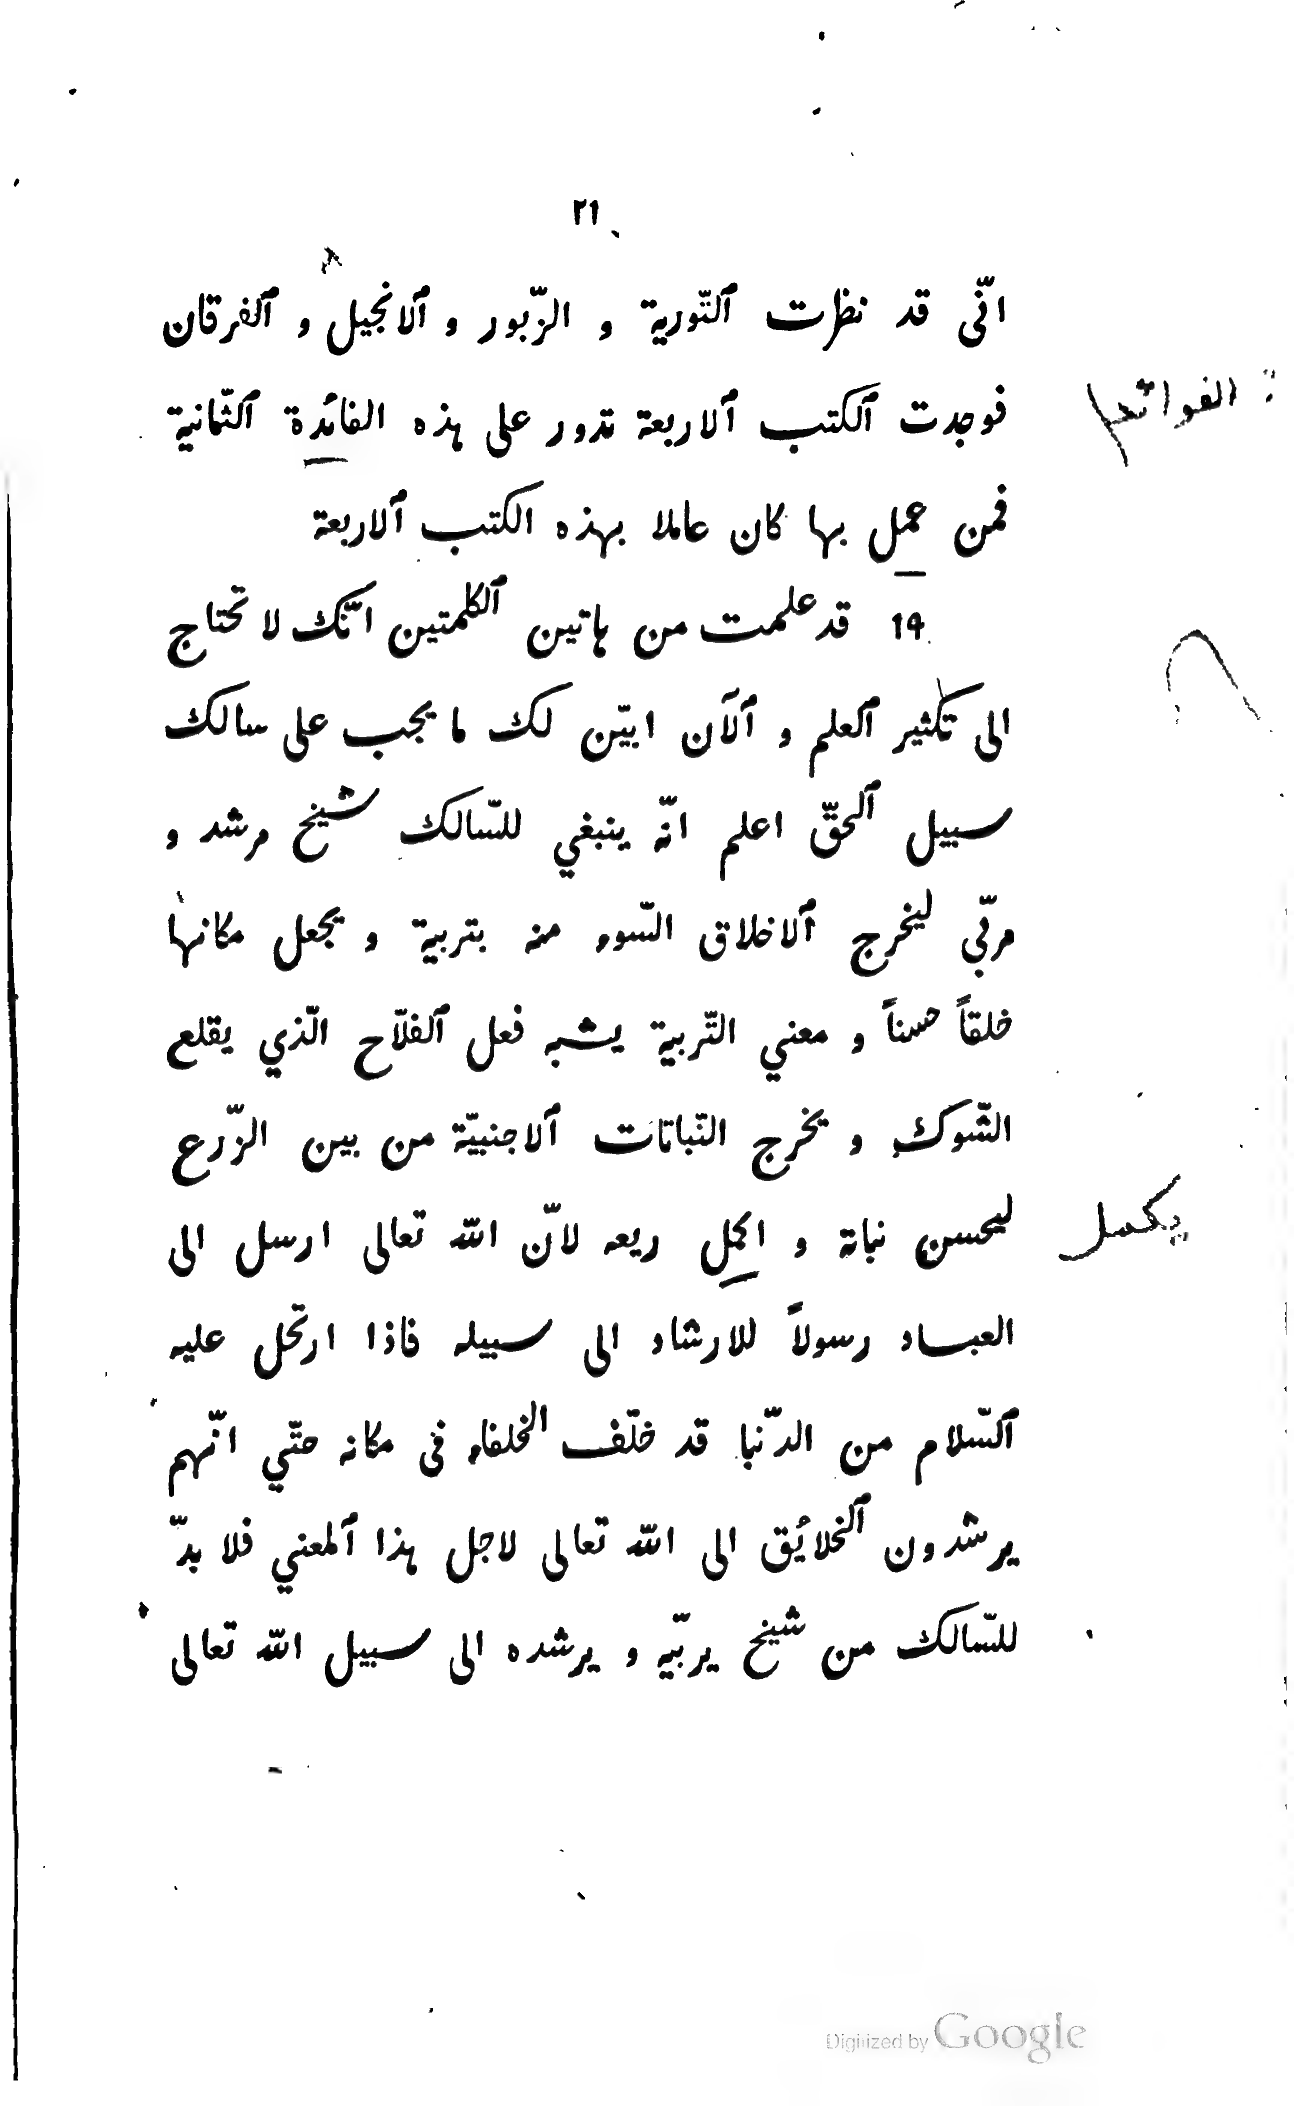 ٢١
انّى قد نظرت ٱلتّورية و الزّبور و ٱلانجيل و ٱلفرقان
فوجدت ٱلكتب ٱلاربعة تدور على هذه الفائدة ٱلثّمانية
الفوائد
فمن عمل بها كان عاملا بهذه الكتب ٱلاربعة
١٩ قد علمت من هاتين ٱلكلمتين انّك لا تحتاج
الى تكثير ٱلعلم و ٱلآن ابيّن لك ما يجب على سالك
سبيل ٱلحقّ اعلم انّه ينبغي للسّالك شيخ مرشد و
مربّي ليخرج ٱلاخلاق السّوء منه بتربية و يجعل مكانها
خلقاً حسناً و معني التّربية يشبه فعل ٱلفلّاح الّذي يقلع
الشّوك و يخرج النّباتات ٱلاجنبيّة من بين الزّرع
ليحسن نباتة و اكمل ريعه لانّ اللّه تعالى ارسل الى
يكمل
العباد رسولاً للارشاد الى سبيله فاذا ارتحل عليه
ٱلسّلام من الدّنيا قد خلّف الخلفاء فى مكانه حتّي انّهم
يرشدون ٱلخلائق الى اللّه تعالى لاجل هذا ٱلمعني فلا بدّ
للسّالك من شيخ يربّيه و يرشده الى سبيل اللّه تعالى
Digitized by Google